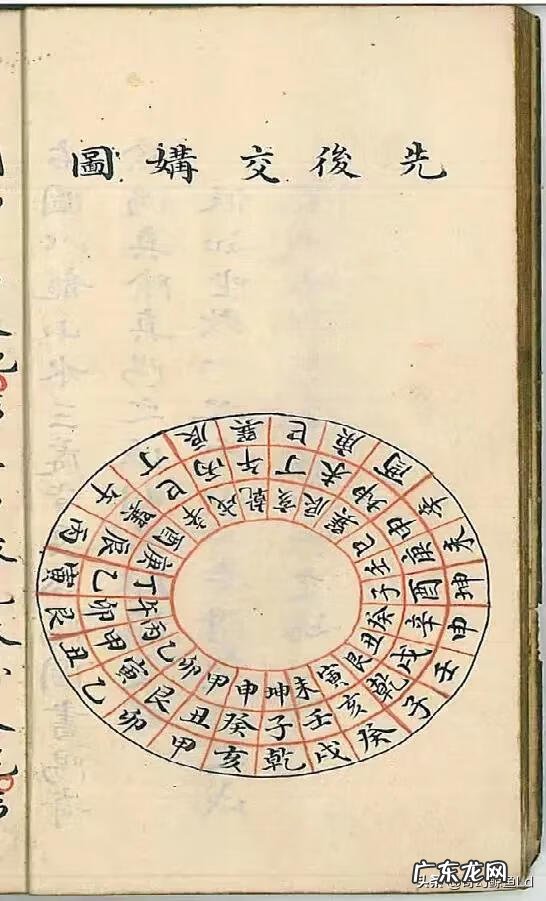 先後交媾圖
巽巳庚酉辛未坤申壬子癸戌乾亥甲卯乙丑艮寅丙午丁辰
午丁未坤申庚酉辛戌乾亥壬子癸丑艮寅甲卯乙辰巽巳丙
乾亥辰巽巳壬子癸丑艮寅未坤申甲卯乙丙午丁庚酉辛戌
广东龙网